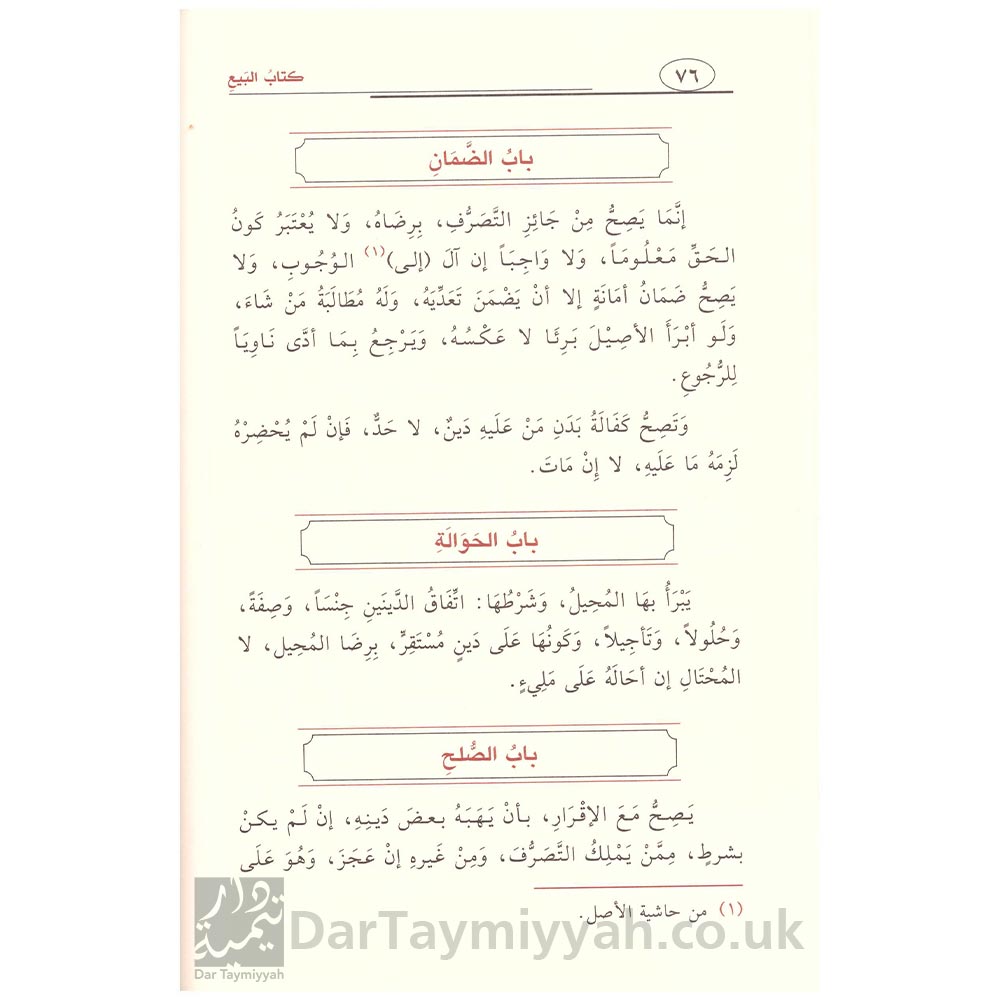 ٧٦
كتابُ البَيعِ
بابُ الضَّمَانِ
إنَّمَا يَصِحُّ مِنْ جَائِزِ التَّصَرُّفِ، بِرِضَاهُ، وَلا يُعْتَبَرُ كَونُ
الحَقِّ مَعْلُومَاً، وَلا وَاجِبَاً إن آلَ (إلى)(١) الوُجُوبِ، وَلا
يَصِحُّ ضَمَانُ أمَانَةٍ إلا أنْ يَضْمَنَ تَعَدِّيَهُ، وَلَهُ مُطَالَبَةُ مَنْ شَاءَ،
وَلَو أبْرَأَ الأصِيْلَ بَرِئَا لا عَكْسُهُ، وَيَرْجِعُ بِمَا أدَّى نَاوِيَاً
لِلرُّجُوعِ.
وَتَصِحُّ كَفَالَةُ بَدَنِ مَنْ عَلَيهِ دَينٌ، لا حَدٌّ، فَإنْ لَمْ يُحْضِرْهُ
لَزِمَهُ مَا عَلَيهِ، لا إِنْ مَاتَ.
بابُ الحَوَالَةِ
يَبْرَأُ بهَا المُحِيلُ، وَشَرْطُهَا: اتِّفَاقُ الدَّينَينِ جِنْسَاً، وَصِفَةً،
وَحُلُولاً، وَتَأجِيلاً، وَكَونُهَا عَلَى دَينٍ مُسْتَقِرٍّ، بِرِضَا المُحِيل، لا
المُحْتَالِ إن أحَالَهُ عَلَى مَلِيءٍ.
بابُ الصُّلحِ
يَصِحُّ مَعَ الإقْرَارِ، بأنْ يَهَبَهُ بعضَ دَينِهِ، إنْ لَمْ يكنْ
بشرطٍ، مِمَّنْ يَمْلِكُ التَّصَرُّفَ، وَمِنْ غَيرِهِ إنْ عَجَزَ، وَهُوَ عَلَى
(١) من حاشية الأصل.
دار تيمية
Dar Taymiyyah
DarTaymiyyah.co.uk